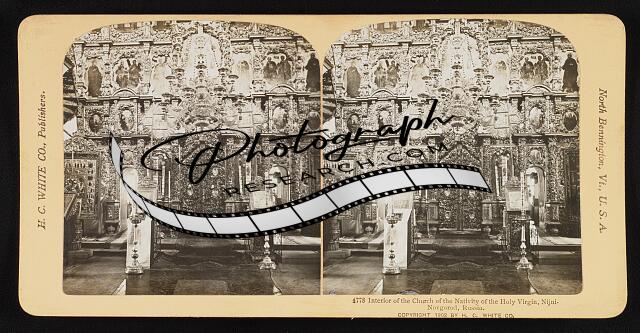 H. C. WHITE CO., Publishers.
Photograph
RESEARCH.COM
North Bennington, Vt., U. S. A.
4778 Interior of the Church of the Nativity of the Holy Virgin, Nijni-
Novgorod, Russia.
COPYRIGHT 1902 BY H. C. WHITE CO.